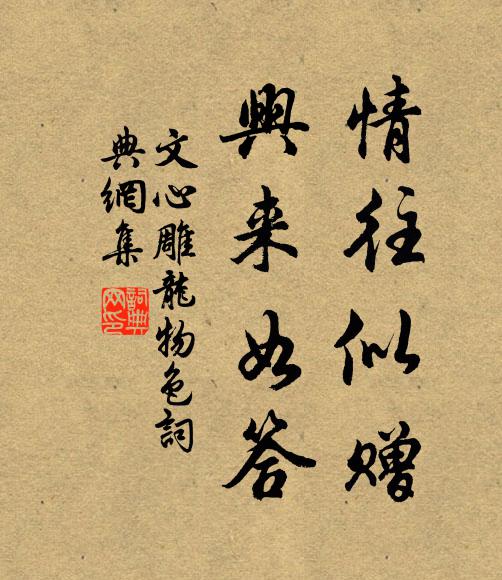 情往似赠
興来如答
文心雕龍物色詞
典網集
詞典网印